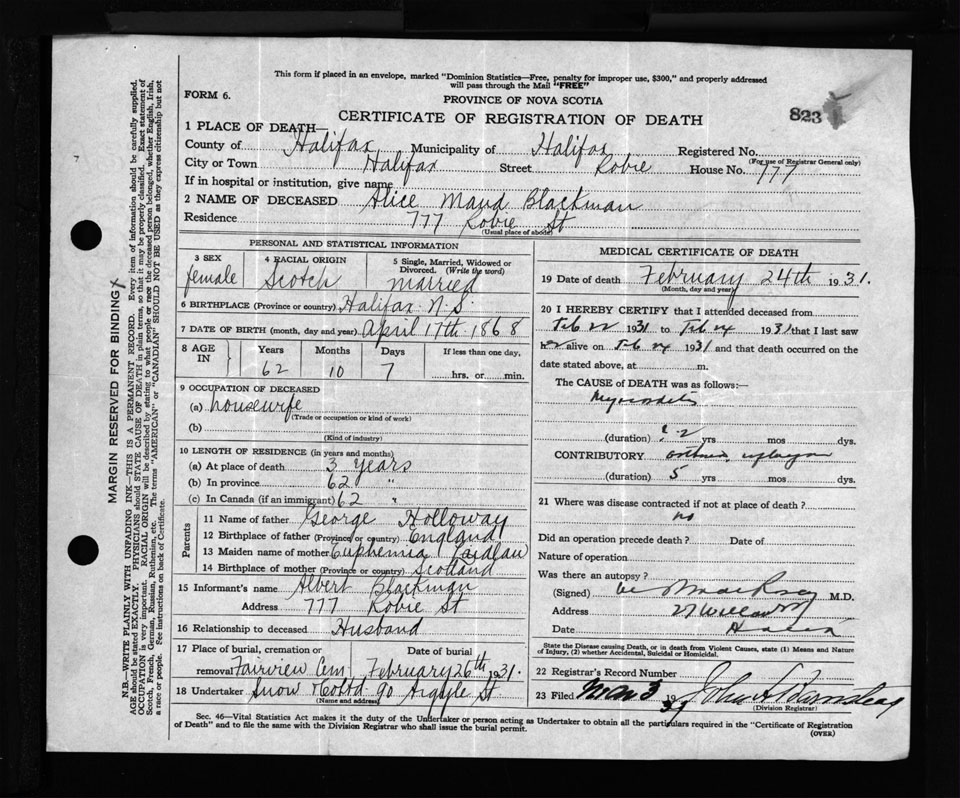 This form if placed in an envelope, marked "Dominion Statistics—Free, penalty for improper use, $300," and properly addressed
will pass through the Mail "FREE"
FORM 6.
PROVINCE OF NOVA SCOTIA
CERTIFICATE OF REGISTRATION OF DEATH
823
1 PLACE OF DEATH—
County of Halifax Municipality of Halifax Registered No.
(For use of Registrar General only)
City or Town Halifax Street Robie House No. 777
If in hospital or institution, give name
2 NAME OF DECEASED Alice Maud Blackman
Residence 777 Robie St
(Usual place of abode)
PERSONAL AND STATISTICAL INFORMATION
3 SEX 4 RACIAL ORIGIN 5 Single, Married, Widowed or
Divorced. (Write the word)
female Scotch Married
6 BIRTHPLACE (Province or country) Halifax N.S.
7 DATE OF BIRTH (month, day and year) April 17th 1868
8 AGE IN Years Months Days If less than one day,
62 10 7 hrs. or min.
9 OCCUPATION OF DECEASED
(a) housewife
(Trade or occupation or kind of work)
(b)
(Kind of industry)
10 LENGTH OF RESIDENCE (in years and months)
(a) At place of death 3 years
(b) In province 62 "
(c) In Canada (if an immigrant) 62 "
Parents
11 Name of father George Holloway
12 Birthplace of father (Province or country) England
13 Maiden name of mother Euphemia Laidlaw
14 Birthplace of mother (Province or country) Scotland
15 Informant's name Albert Blackman
Address 777 Robie St
16 Relationship to deceased Husband
17 Place of burial, cremation or Date of burial
removal Fairview Cem February 26th 1931.
18 Undertaker Snow & Co Ltd 90 Argyle St
(Name and address)
MEDICAL CERTIFICATE OF DEATH
19 Date of death February 24th 1931.
(Month, day and year)
20 I HEREBY CERTIFY that I attended deceased from
Feb 22 1931 to Feb 24 1931 that I last saw
her alive on Feb 24 1931 and that death occurred on the
date stated above, at m.
The CAUSE of DEATH was as follows:—
Myocarditis
(duration) ? 2 yrs mos dys.
CONTRIBUTORY
(duration) 5 yrs mos dys.
21 Where was disease contracted if not at place of death?
no
Did an operation precede death? Date of
Nature of operation
Was there an autopsy?
(Signed) M.D.
Address
Date
State the Disease causing Death, or in death from Violent Causes, state (1) Means and Nature
of Injury, (2) whether Accidental, Suicidal or Homicidal.
22 Registrar's Record Number
23 Filed Mar 3 1931
(Division Registrar)
Sec. 46—Vital Statistics Act makes it the duty of the Undertaker or person acting as Undertaker to obtain all the particulars required in the "Certificate of Registration
of Death" and to file the same with the Division Registrar who shall issue the burial permit.
(OVER)
MARGIN RESERVED FOR BINDING
N.B.—WRITE PLAINLY WITH UNFADING INK—THIS IS A PERMANENT RECORD. Every item of information should be carefully supplied.
AGE should be stated EXACTLY. PHYSICIANS should STATE CAUSE OF DEATH in plain terms, so that it may be properly classified. Exact statement of
OCCUPATION is very important. RACIAL ORIGIN will be described by stating to what people or race the deceased person belonged, whether English, Irish,
Scotch, French, German, Russian, Ruthenian, etc. The terms "AMERICAN" or "CANADIAN" SHOULD NOT BE USED as they express citizenship but not
a race or people. See instructions on back of Certificate.